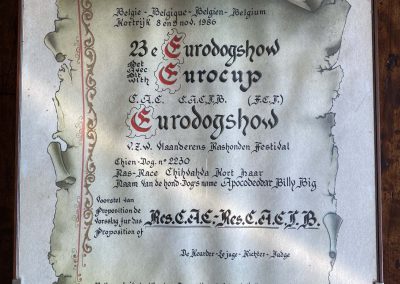 België - Belgique - Belgien - Belgium
Kortrijk 8 en 9 nov. 1986
23e Eurodogshow
Met
Avec
Mit
With
Eurocup
C.A.C. C.A.C.I.B. (F.C.I.)
Eurodogshow
v.z.w. Vlaanderens Rashonden Festival
Chien-Dog. nº 2230
Ras-Race Chihuahua Kort Haar
Naam van de hond-Dog's name Apocodeodar Billy Big
Voorstel van
Proposition de
Vorschlag für das
Proposition of
Res.C.A.C.-Res.C.A.C.I.B.
De Keurder-Le juge-Richter-Judge